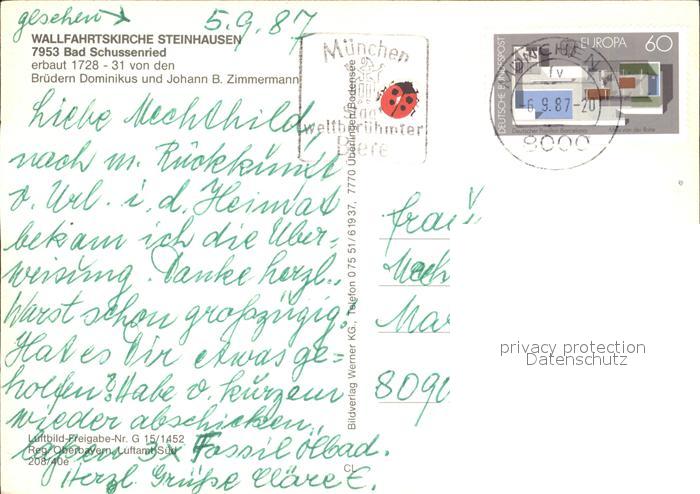 gesehen → 5.9.87
WALLFAHRTSKIRCHE STEINHAUSEN
7953 Bad Schussenried
erbaut 1728 - 31 von den
Brüdern Dominikus und Johann B. Zimmermann
Liebe Mechthild,
nach m. Rückkunft
v. Url. i. d. Heimat
bekam ich die Über-
weisung. Danke herzl.,
Warst schon großzügig.
Hat es Dir etwas ge-
holfen? Habe v. kurzem
wieder abschicken
3x Fossil Ölbad.
Herzl. Grüße Cläre E.
Luftbild-Freigabe-Nr. G 15/1452
Reg. Oberbayern, Luftamt Süd
208/40e
CL
Bildverlag Werner KG, Telefon 0 75 51/6 19 37, 7770 Überlingen/Bodensee
München
weltberühmter
Biere
DEUTSCHE BUNDESPOST
EUROPA 60
Deutscher Pavillon Barcelona
Mies van der Rohe
MÜNCHEN
fv
-6.9.87-20
8000
Frau
Mech
Mar
8090
privacy protection
Datenschutz